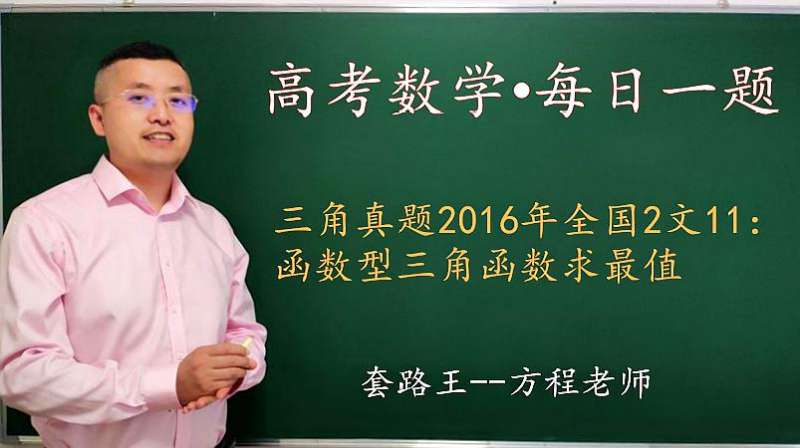 高考数学•每日一题
三角真题2016年全国2文11：
函数型三角函数求最值
套路王--方程老师